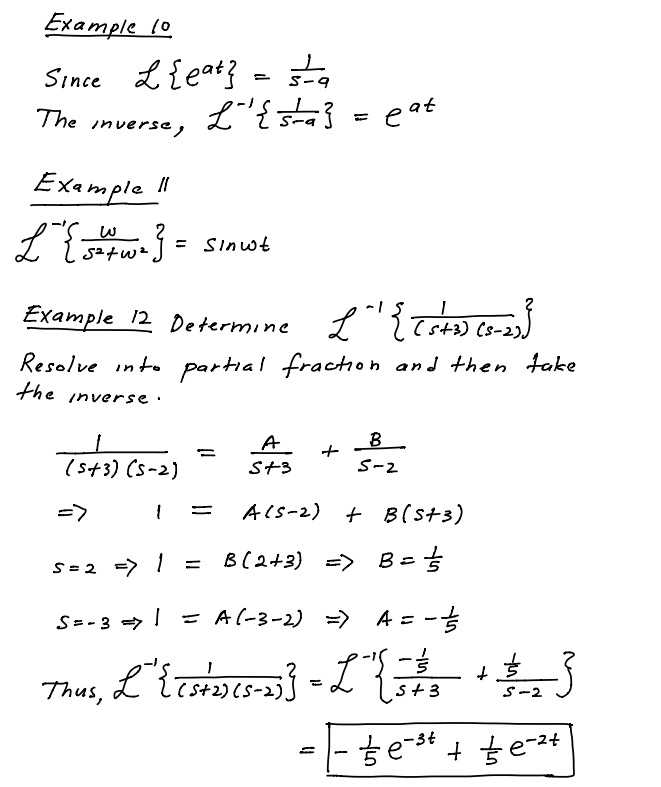 Example 10
Since ℒ{e^{at}} = 1/(s-a)
The inverse, ℒ^{-1}{1/(s-a)} = e^{at}
Example 11
ℒ^{-1}{w/(s²+w²)} = sinwt
Example 12 Determine ℒ^{-1}{1/((s+3)(s-2))}
Resolve into partial fraction and then take
the inverse.
1/((s+3)(s-2)) = A/(s+3) + B/(s-2)
=> 1 = A(s-2) + B(s+3)
s=2 => 1 = B(2+3) => B = 1/5
s=-3 => 1 = A(-3-2) => A = -1/5
Thus, ℒ^{-1}{1/((s+2)(s-2))} = ℒ^{-1}{(-1/5)/(s+3) + (1/5)/(s-2)}
= -1/5 e^{-3t} + 1/5 e^{-2t}